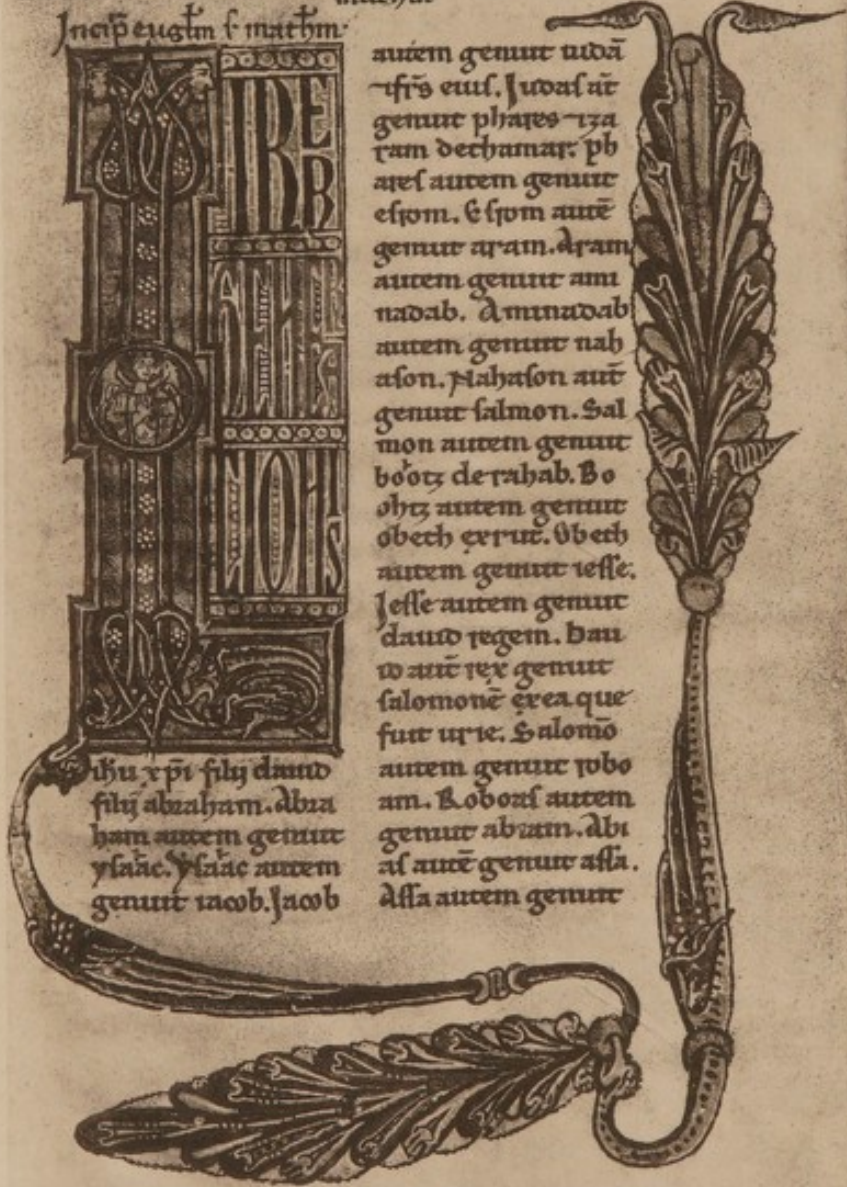 Incip̄ euglm̄ s̄ mathm̄·
LIBER
GENE
RATI
ONIS
ihu xp̄i filij dauid
filij abraham. Abra
ham autem genuit
ysaac. Ysaac autem
genuit iacob. Jacob
autem genuit iudā
⁊ fr̄s eius. Judas aut̄
genuit phares ⁊ za
ram de thamar. ph
ares autem genuit
esrom. Esrom autē
genuit aram. Aram
autem genuit ami
nadab. Aminadab
autem genuit nah
ason. Nahason aut̄
genuit salmon. Sal
mon autem genuit
bootz de rahab. Bo
ohtz autem genuit
obeth ex rut. Obeth
autem genuit iesse.
Jesse autem genuit
dauid regem. Dau
id aut̄ rex genuit
salomonē ex ea que
fuit urie. Salomō
autem genuit robo
am. Roboas autem
genuit abiam. Abi
as autē genuit assa.
Assa autem genuit